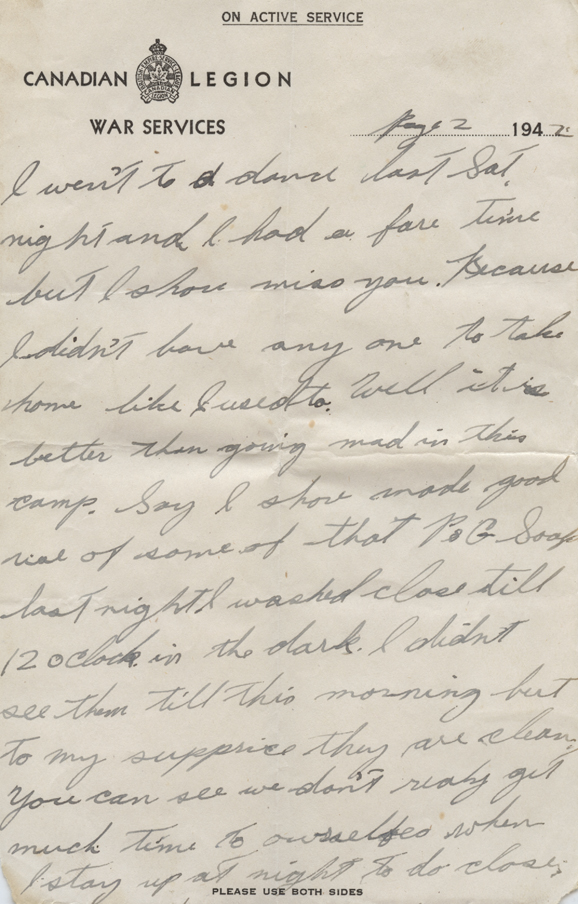 ON ACTIVE SERVICE
CANADIAN LEGION
WAR SERVICES
Page 2 1942
I wen't to a dance last Sat.
night and I had a fare time
but I shore miss you. Because
I didn't have any one to take
home like I used to. Well it is
better than going mad in this
camp. Say I shore made good
use of some of that P&G Soap
last night I washed close till
12 oclock in the dark. I didn't
see them till this morning but
to my supprise they are clean,
You can see we don't realy get
much time to ourselfes when
I stay up at night to do close,
PLEASE USE BOTH SIDES